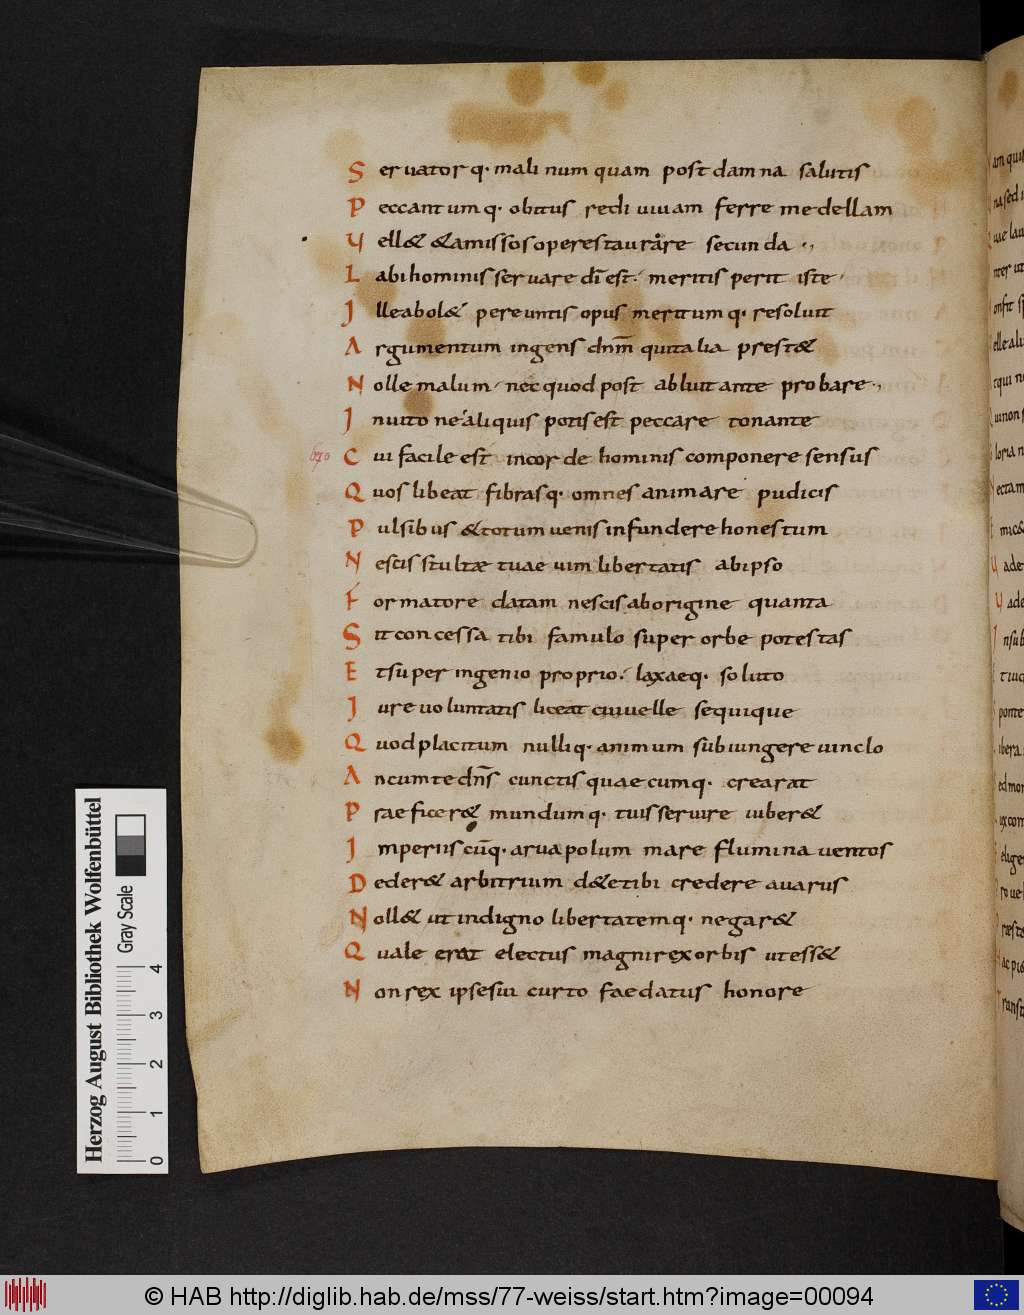 Seruatorq· mali numquam post damna salutis
Peccantumq· obitus rediuiuam ferre medellam
Uell& &amissos operes taurare secunda
Labi hominis seruare dī est· meritis perit iste
Ille abol& pereuntis opus meritumq· resoluit
Argumentum ingens dnm̄ qui talia prest&
Nolle malum nec quod post abluit ante probare
Inuito ne aliquis potis est peccare tonante
Cui facile est in corde hominis componere sensus
Quos libeat fibrasq· omnes animare pudicis
Pulsibus &totum uenis infundere honestum
Nescis stultæ tuae uim libertatis ab ipso
Formatore datam nescis ab origine quanta
Sit concessa tibi famulo super orbe potestas
Et super ingenio proprio· laxaeq· soluto
Iure uoluntatis liceat cui uelle sequique
Quod placitum nulliq· animum subiungere uinclo
An cum te dns̄ cunctis quaecumq· crearat
Praeficer& mundumq· tuis seruire iuber&
Imperiis cūq· arua polum mare flumina uentos
Deder& arbitrium d& etibi credere auarus
Noll& ut indigno libertatemq· negar&
Quale erat electus magni rex orbis ut ess&
Non rex ipse sui curto faedatus honore
Herzog August Bibliothek Wolfenbüttel
Gray Scale
0 1 2 3 4
© HAB http://diglib.hab.de/mss/77-weiss/start.htm?image=00094